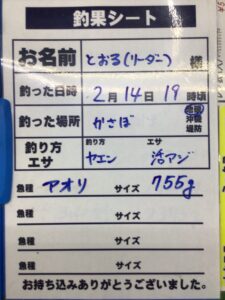 釣果シート
お名前 とおる(リーダー) 様
釣った日時 2月14日19時頃
釣った場所 かさぼ 地磯 沖磯 堤防
釣り方 エサ 釣り方 ヤエン エサ 活アジ
魚種 アオリ サイズ 755g
魚種 サイズ
魚種 サイズ
魚種 サイズ
お持ち込みありがとうございました。